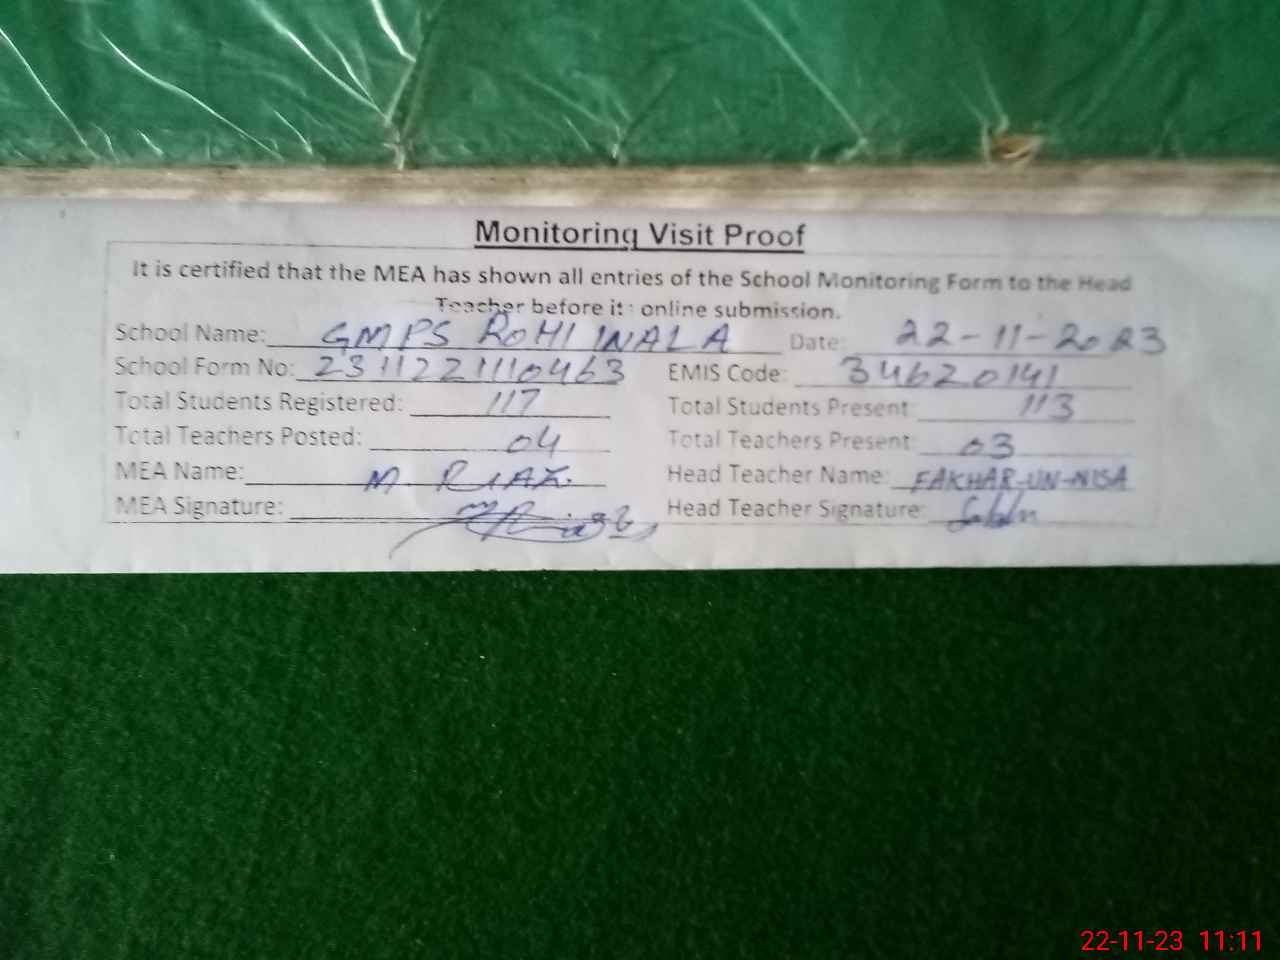 Monitoring Visit Proof
It is certified that the MEA has shown all entries of the School Monitoring Form to the Head
Teacher before its online submission.
School Name: GMPS ROHI WALA Date: 22-11-2023
School Form No: 2311221110463 EMIS Code: 34620141
Total Students Registered: 117 Total Students Present: 113
Total Teachers Posted: 04 Total Teachers Present: 03
MEA Name: M. RIAZ. Head Teacher Name: FAKHAR-UN-NISA
MEA Signature: Head Teacher Signature:
22-11-23 11:11